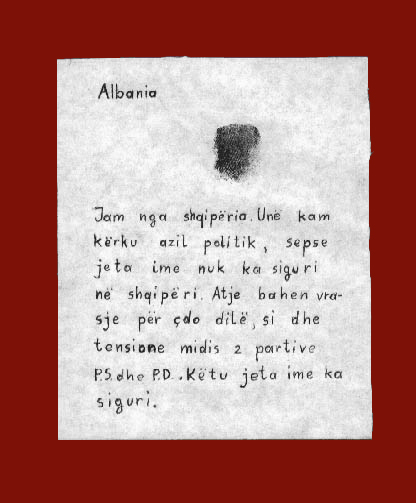 Albania
Jam nga shqipëria. Unë kam
kërku azil politik, sepse
jeta ime nuk ka siguri
në shqipëri. Atje bahen vra-
sje për çdo dilë, si dhe
tensione midis 2 partive
P.S. dhe P.D. . Këtu jeta ime ka
siguri.